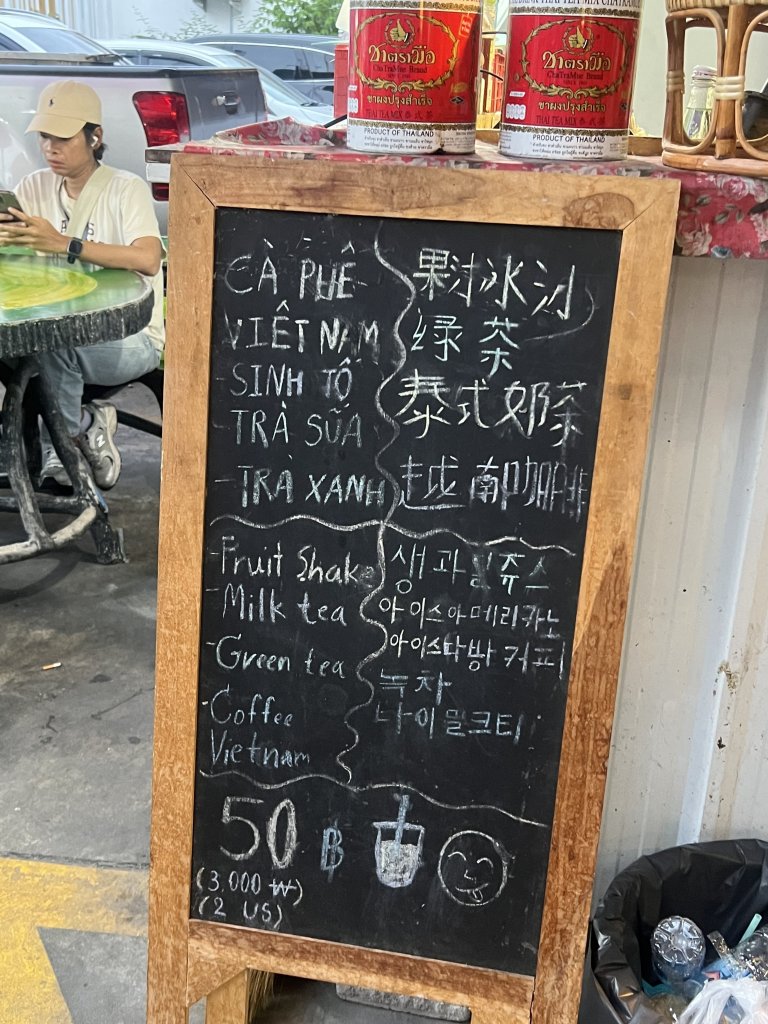 ชาตรามือ
ChaTraMue Brand
ชาผงปรุงสำเร็จ
THAI TEA MIX
PRODUCT OF THAILAND
ชาตรามือ
ChaTraMue Brand
ชาผงปรุงสำเร็จ
THAI TEA MIX
PRODUCT OF THAILAND
- CÀ PHÊ
VIỆT NAM
- SINH TỐ
- TRÀ SỮA
- TRÀ XANH
果汁冰沙
绿茶
泰式奶茶
越南咖啡
- Fruit Shake
- Milk tea
- Green tea
- Coffee
Vietnam
생과일쥬스
아이스아메리카노
아이스다방커피
녹차
타이밀크티
50 ฿
(3.000 ₩)
(2 US)